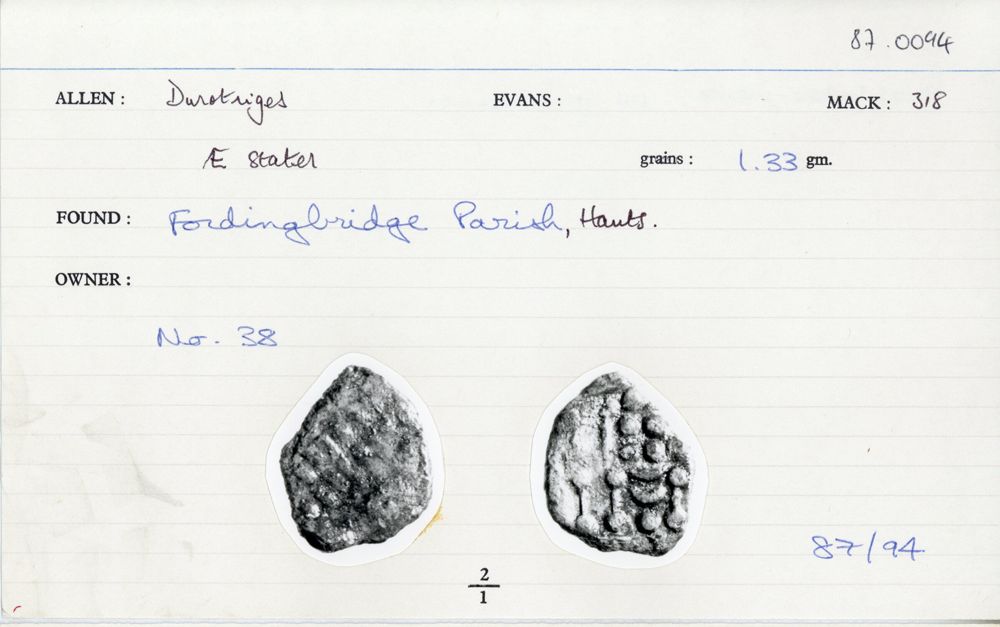 87.0094
ALLEN : Durotriges EVANS : MACK : 318
Æ Stater grains : 1.33 gm.
FOUND : Fordingbridge Parish, Hants.
OWNER :
No. 38
87/94
2
1